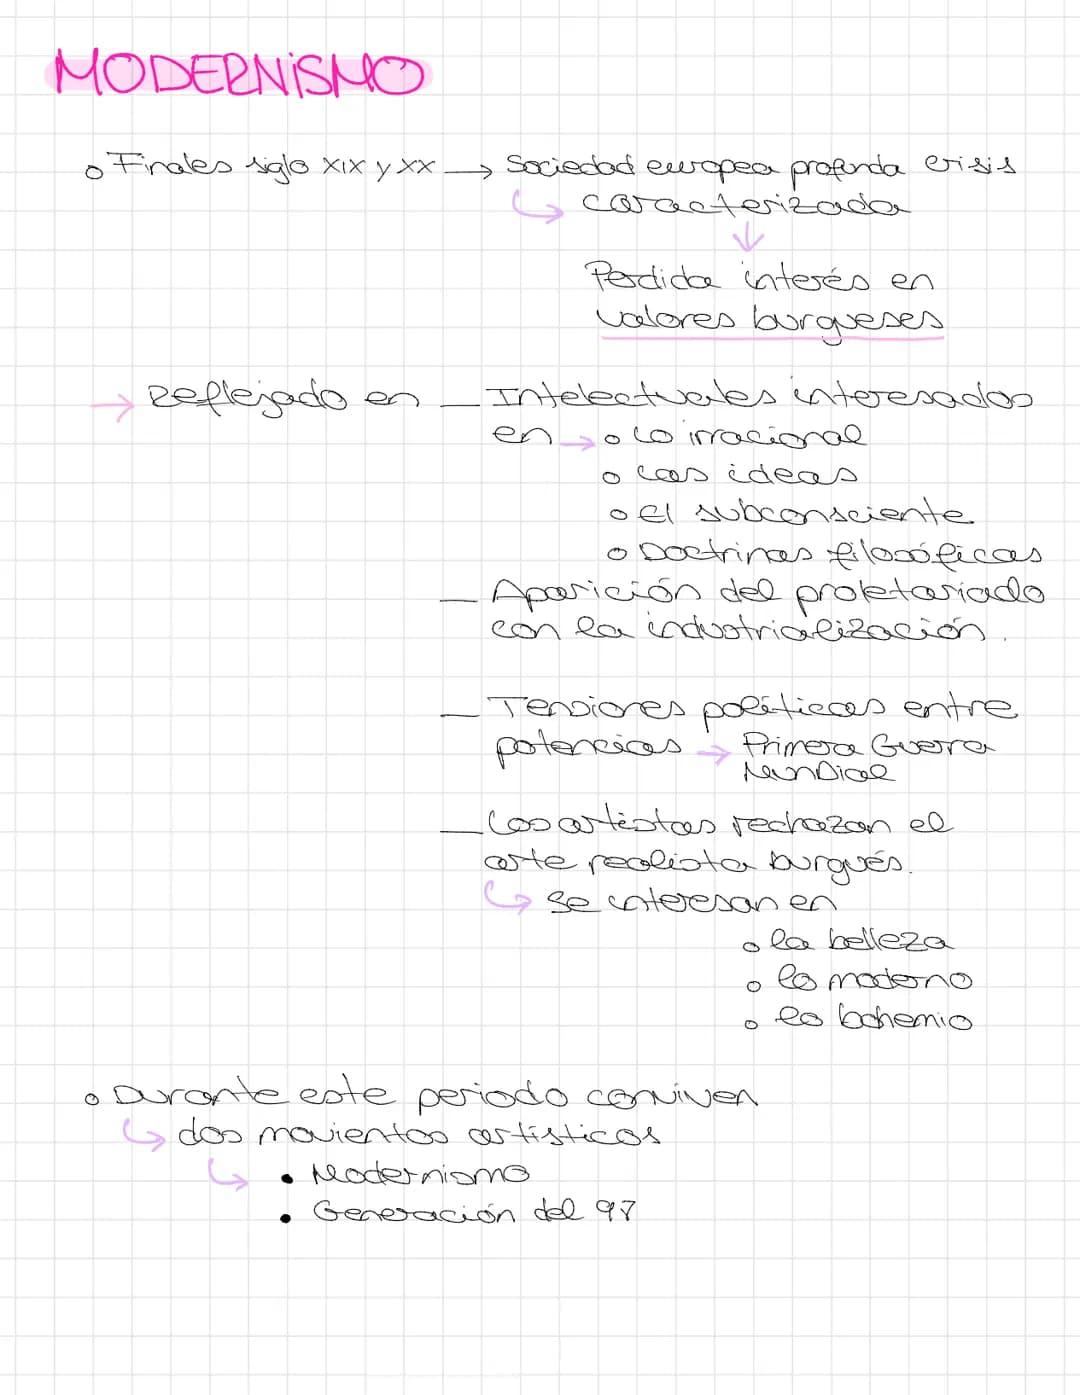 MODERNiSMO
Finales siglo XIX y XX → Sociedad europea profunda crisis
caracterizada
Perdida interés en
valores burgueses
→ Reflejado en — Intelectuales interesados
en → o Lo irracional
o Las ideas
o El subconsciente
o Doctrinas filosóficas
— Aparición del proletariado
con la industrialización.
— Tensiones políticas entre
potencias → Primera Guerra
Mundial
— Los artistas rechazan el
arte realista burgués.
Se interesan en
o la belleza
o lo moderno
o lo bohemio
o Durante este periodo conviven
dos movientos artísticos
• Modernismo
• Generación del 97